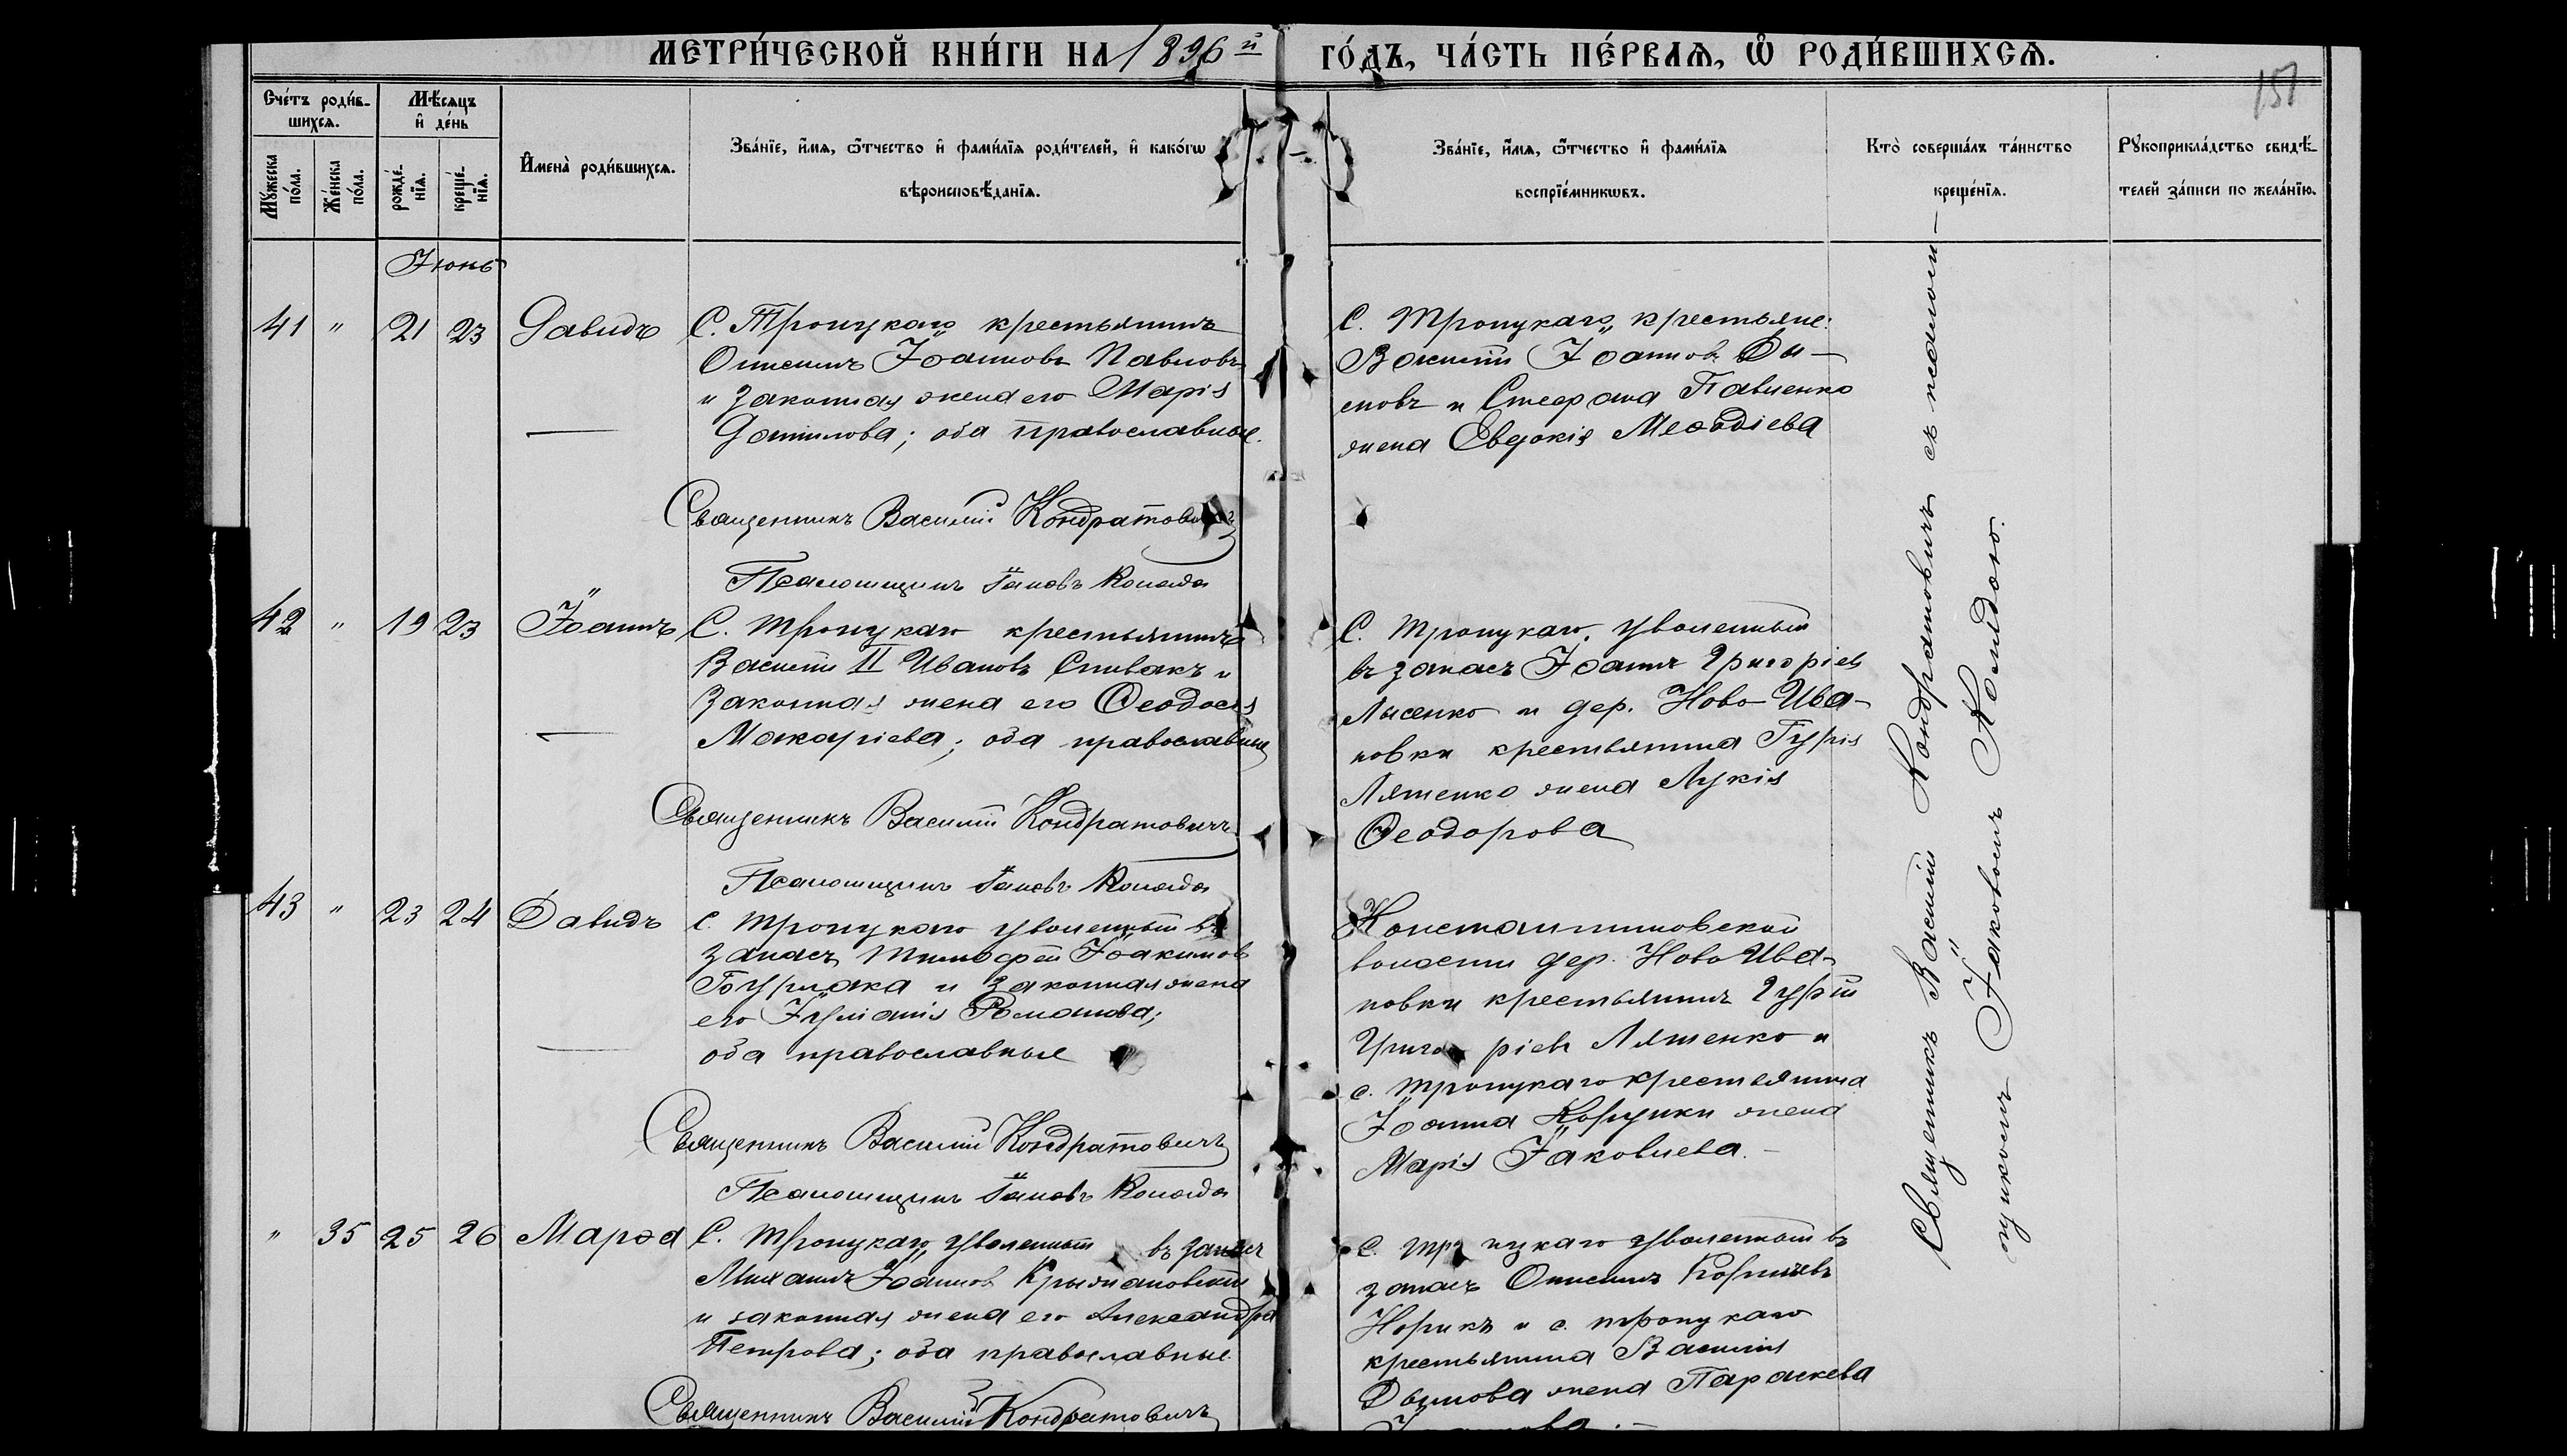 МЕТРИ́ЧЕСКОЙ КНИ́ГИ НА 1896й ГО́ДЪ, ЧА́СТЬ ПЕ́РВАѦ, Ѽ РОДИ́ВШИХСѦ.
151
Сче́тъ роди́в-
шихсѧ.
Мѣ́сѧцъ
и҆ де́нь
Мꙋ́жеска
по́ла.
Же́нска
по́ла.
рожде́-
нїѧ.
креще́-
нїѧ.
И҆мена̀ роди́вшихсѧ.
Зва́нїе, и҆́мѧ, ѻ҆́тчество и҆ фами́лїѧ роди́телей, и҆ како́гѡ
вѣроисповѣ́данїѧ.
Зва́нїе, и҆́мѧ, ѻ҆́тчество и҆ фами́лїѧ
воспрїе́мникѡвъ.
Кто̀ соверша́лъ та́инство
креще́нїѧ.
Рꙋкоприкла́дство свидѣ́-
телей за́писи по жела́нїю.
Іюнь
41 " 21 23 Давидъ
С. Троицкаго крестьянинъ
Онисимъ Іоанновъ Павловъ
и законная жена его Марія
Даниилова; оба православные.
Священникъ Василій Кондратовичъ
Псаломщикъ Іаковъ Коляда
С. Троицкаго крестьяне:
Василій Іоанновъ Ды-
мовъ и Стефана Павленко
жена Евдокія Меѳодіева
42 " 19 23 Іоаннъ
С. Троицкаго крестьянинъ
Василій II Ивановъ Спивакъ и
законная жена его Ѳеодосія
Макаріева; оба православные
Священникъ Василій Кондратовичъ
Псаломщикъ Іаковъ Коляда
С. Троицкаго, уволенный
въ запасъ Іоаннъ Григоріевъ
Лысенко и дер. Ново-Ива-
новки крестьянина Гурія
Ляшенко жена Лукія
Ѳеодорова
43 " 23 24 Давидъ
С. Троицкаго уволенный въ
запасъ Тимофей Іоакимовъ
и законная жена
его Іуліанія Романова;
оба православные
Священникъ Василій Кондратовичъ
Псаломщикъ Іаковъ Коляда
Константиновской
волости дер. Ново Ива-
новки крестьянинъ Гурій
Григоріевъ Ляшенко и
с. Троицкаго крестьянина
Іоанна жена
Марія Іаковлева.
" 35 25 26 Марѳа
С. Троицкаго, уволенный въ запасъ
Михаилъ Іоанновъ Крыжановскій
и законная жена его Александра
Петрова; оба православные.
Священникъ Василій Кондратовичъ
С. Троицкаго уволенный въ
запасъ Онисимъ
Норикъ и с. Троицкаго
крестьянина Василія
Дымова жена Параскева
Священникъ Василій Кондратовичъ съ псалом-
щикомъ Іаковомъ Колядою.